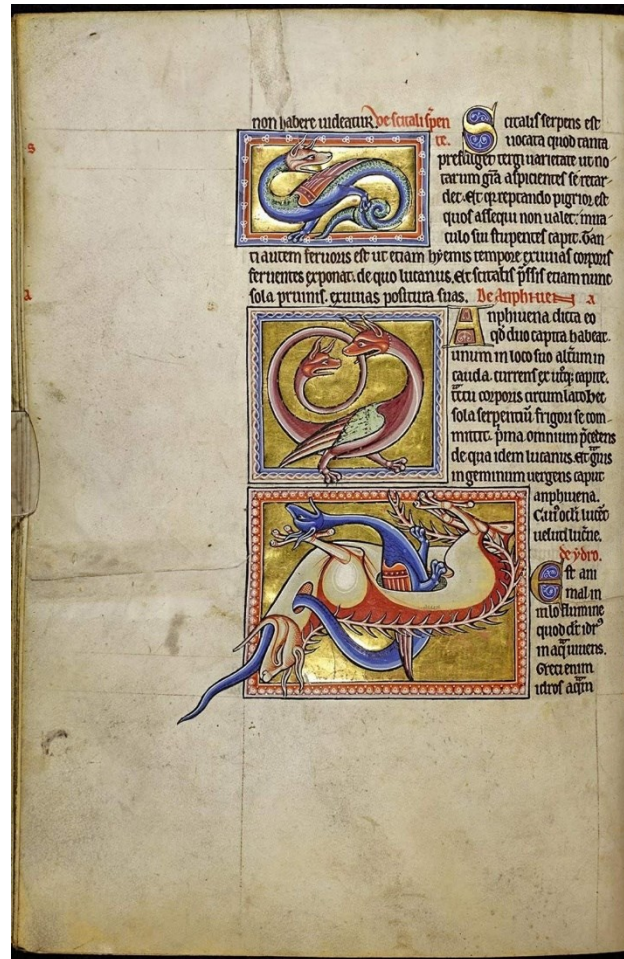 non habere uideatur. De scitali spen
te.
S
Scitalis serpens est
uocata quod tanta
prefulget tergi uarietate ut no
tarum gra aspicientes se retar
det. Et qr reptando pigrior est
quos assequi non ualet: mira
culo sui stupentes capit. Tan
ti autem feruoris est ut etiam hyemis tempore exuuias corporis
feruentes exponat. de quo lucanus. Et scitalis spsis etiam nunc
sola pruinis. exuuias positura suas. De Anphiuen a
a
Anphiuena dicta eo
qd duo capita habeat.
unum in loco suo alium in
cauda. currens ex utq; capite.
tctu corporis circumlato hec
sola serpentiu frigori se com
mittit. pma omnium pcedens
de qua idem lucanus. Et guis
in geminum uergens caput
anphiuena.
Cui' ocli lucet
uelud lucne.
de ydro.
Est ani
mal in
nilo flumine
quod dr idr'
in aq uiuens.
Greci enim
idros aqm